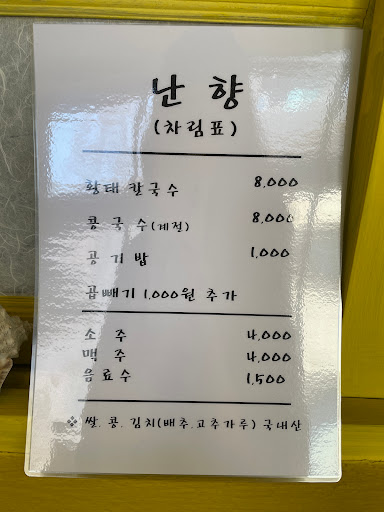 난 향
(차림표)
황태 칼국수 8,000
콩 국 수(계절) 8,000
공 기 밥 1,000
곱빼기 1,000원 추가
소 주 4,000
맥 주 4,000
음료수 1,500
※ 쌀. 콩. 김치(배추.고추가루) 국내산